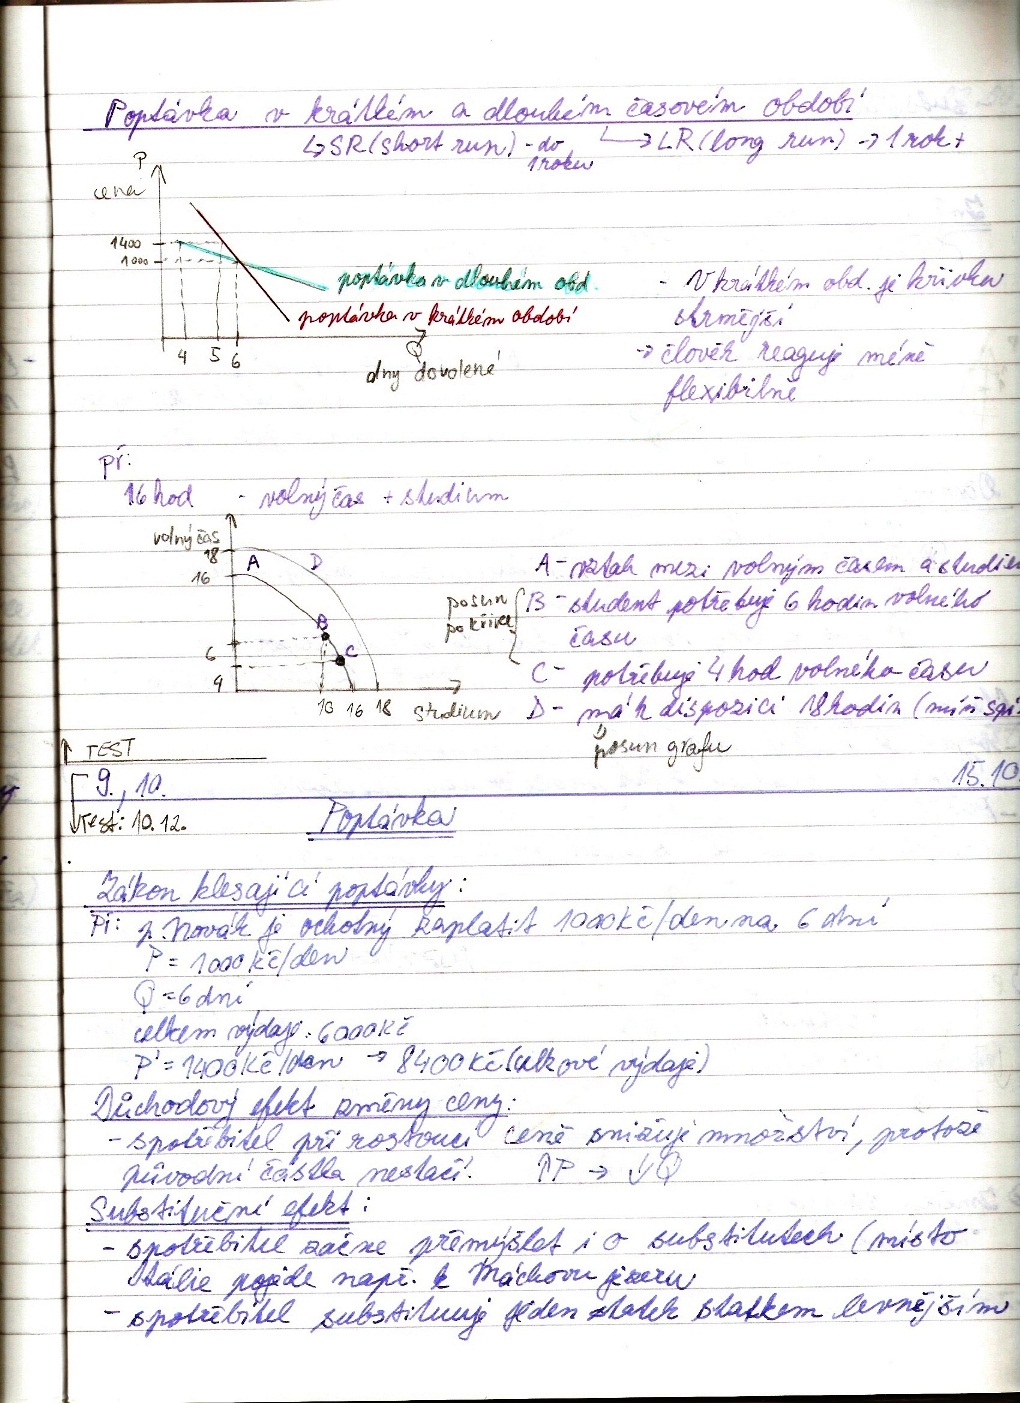 Poptávka v krátkém a dlouhém časovém období
↳ SR (short run) - do 1 roku ↳ LR (long run) → 1 rok +
P
cena
1400
1000
poptávka v dlouhém obd.
poptávka v krátkém období
4 5 6
Q
dny dovolené
- V krátkém obd. je křivka
strmější
→ člověk reaguje méně
flexibilně
Př:
16 hod - volný čas + studium
volný čas
18
16
6
4
A
D
B
C
10 16 18 studium
A - vztah mezi volným časem a studiem
posun
po křivce
B - student potřebuje 6 hodin volného
času
C - potřebuje 4 hod volného času
D - má k dispozici 18 hodin (míň spí
posun grafu
↑ TEST
9., 10. 15.10.
Test: 10.12.
Poptávka
Zákon klesající poptávky:
Př: p. Novák je ochotný zaplatit 1000Kč/den na 6 dní
P = 1000 Kč/den
Q = 6 dní
celkem výdaje: 6000Kč
P' = 1400Kč/den → 8400Kč (celkové výdaje)
Důchodový efekt změny ceny:
- spotřebitel při rostoucí ceně snižuje množství, protože
původní částka nestačí. ↑P → ↓Q
Substituční efekt:
- spotřebitel začne přemýšlet i o substitutech (místo
Itálie pojede např. k Máchovu jezeru
- spotřebitel substituuje jeden statek statkem levnějším